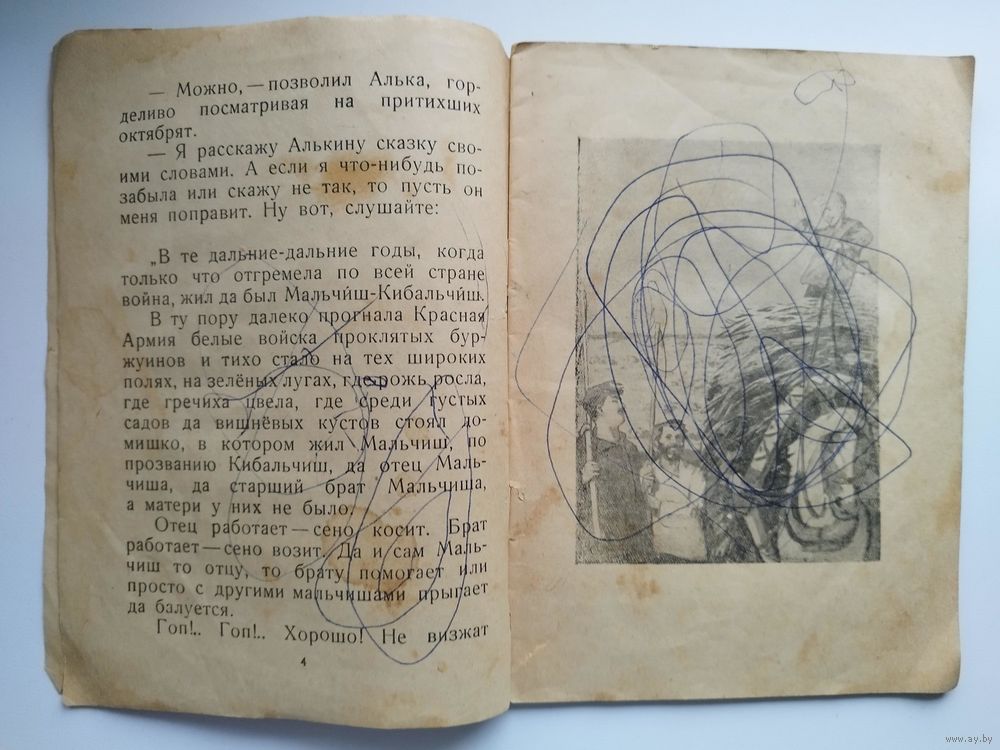 — Можно,—позволил Алька, гор-
деливо посматривая на притихших
октябрят.
— Я расскажу Алькину сказку сво-
ими словами. А если я что-нибудь по-
забыла или скажу не так, то пусть он
меня поправит. Ну вот, слушайте:
„В те дальние-дальние годы, когда
только что отгремела по всей стране
война, жил да был Мальчи́ш-Кибальчи́ш.
В ту пору далеко прогнала Красная
Армия белые войска проклятых бур-
жуинов и тихо стало на тех широких
полях, на зелёных лугах, где рожь росла,
где гречиха цвела, где среди густых
садов да вишнёвых кустов стоял до-
мишко, в котором жил Мальчиш, по
прозванию Кибальчиш, да отец Маль-
чиша, да старший брат Мальчиша,
а матери у них не было.
Отец работает—сено косит. Брат
работает—сено возит. Да и сам Маль-
чиш то отцу, то брату помогает или
просто с другими мальчишами прыгает
да балуется.
Гоп!.. Гоп!.. Хорошо! Не визжат
4
www.ay.by